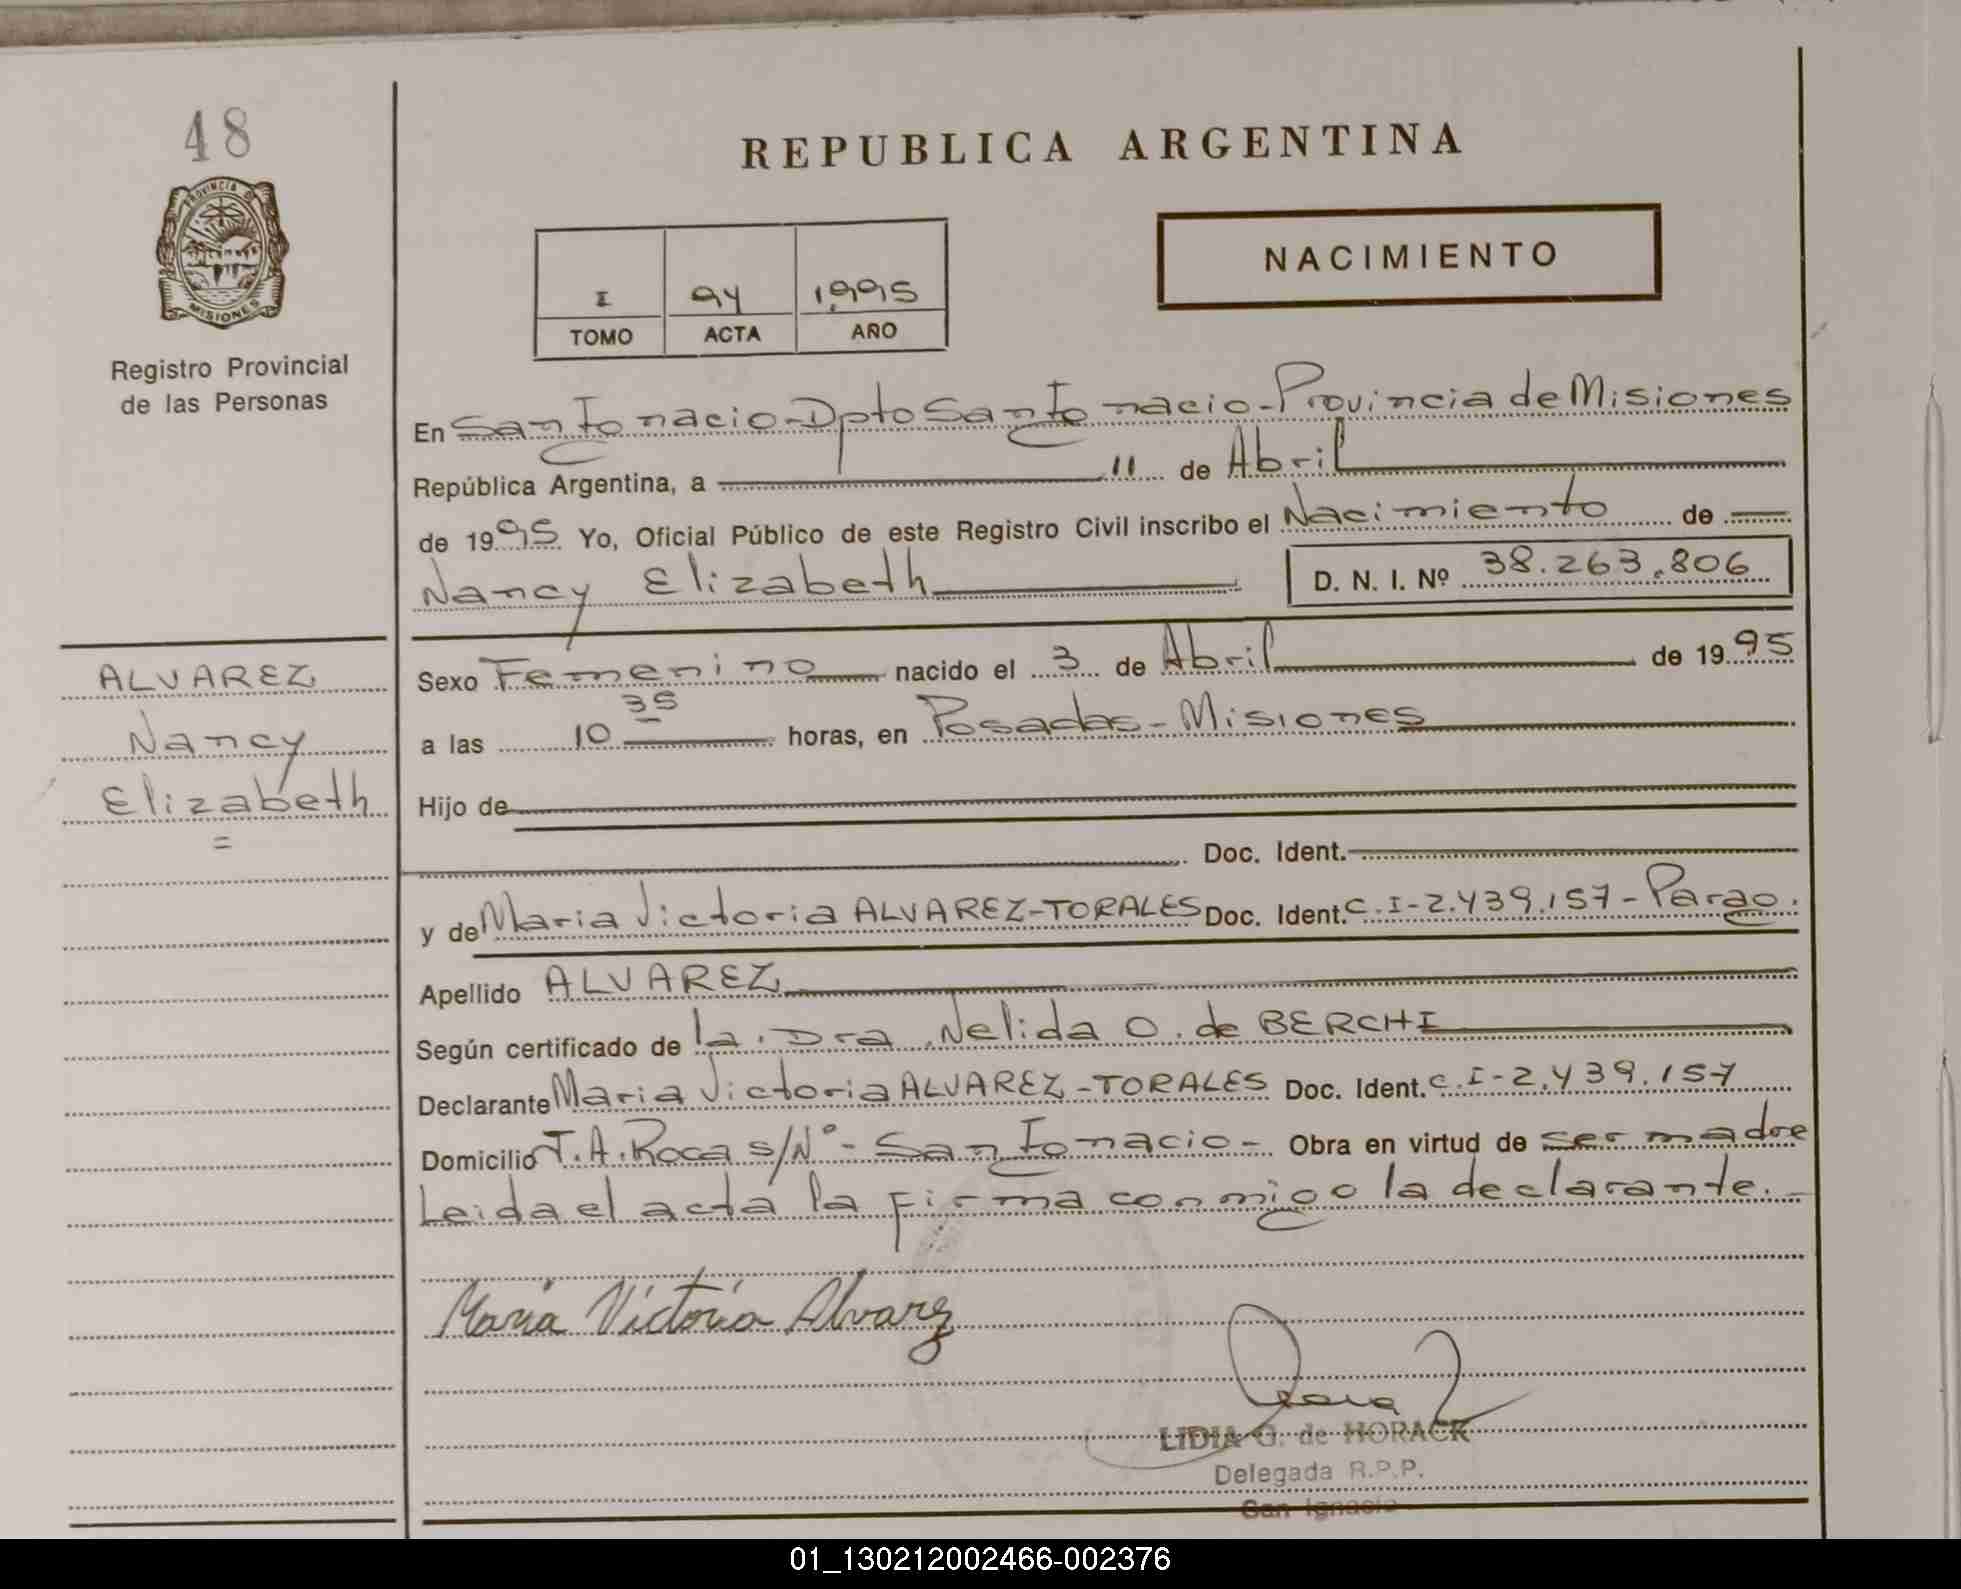 48
REPUBLICA ARGENTINA
PROVINCIA DE
MISIONES
NACIMIENTO
I 94 1.995
TOMO ACTA AÑO
Registro Provincial
de las Personas
En San Ignacio-Dpto San Ignacio-Provincia de Misiones
República Argentina, a 11 de Abril
de 1995 Yo, Oficial Público de este Registro Civil inscribo el Nacimiento de
Nancy Elizabeth D. N. I. Nº 38.263.806
ALVAREZ
Nancy
Elizabeth
=
Sexo Femenino nacido el 3 de Abril de 1995
a las 10 35 horas, en Posadas-Misiones
Hijo de
Doc. Ident.
y de Maria Victoria ALVAREZ-TORALES Doc. Ident. C.I-2.439.157-Parag.
Apellido ALVAREZ
Según certificado de la. Dra. Nelida O. de BERCHI
Declarante Maria Victoria ALVAREZ-TORALES Doc. Ident. C.I-2.439.157
Domicilio J.A.Roca s/Nº- San Ignacio- Obra en virtud de ser madre
Leida el acta la firma conmigo la declarante.-
Maria Victoria Alvarez
LIDIA G. de HORACK
Delegada R.P.P.
San Ignacio
01_130212002466-002376